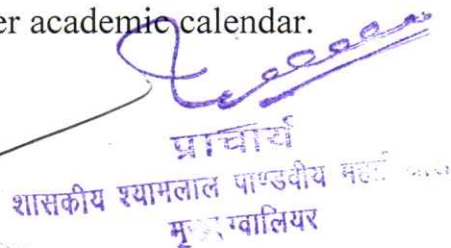 er academic calendar.
प्राचार्य
शासकीय श्यामलाल पाण्डवीय
ग्वालियर